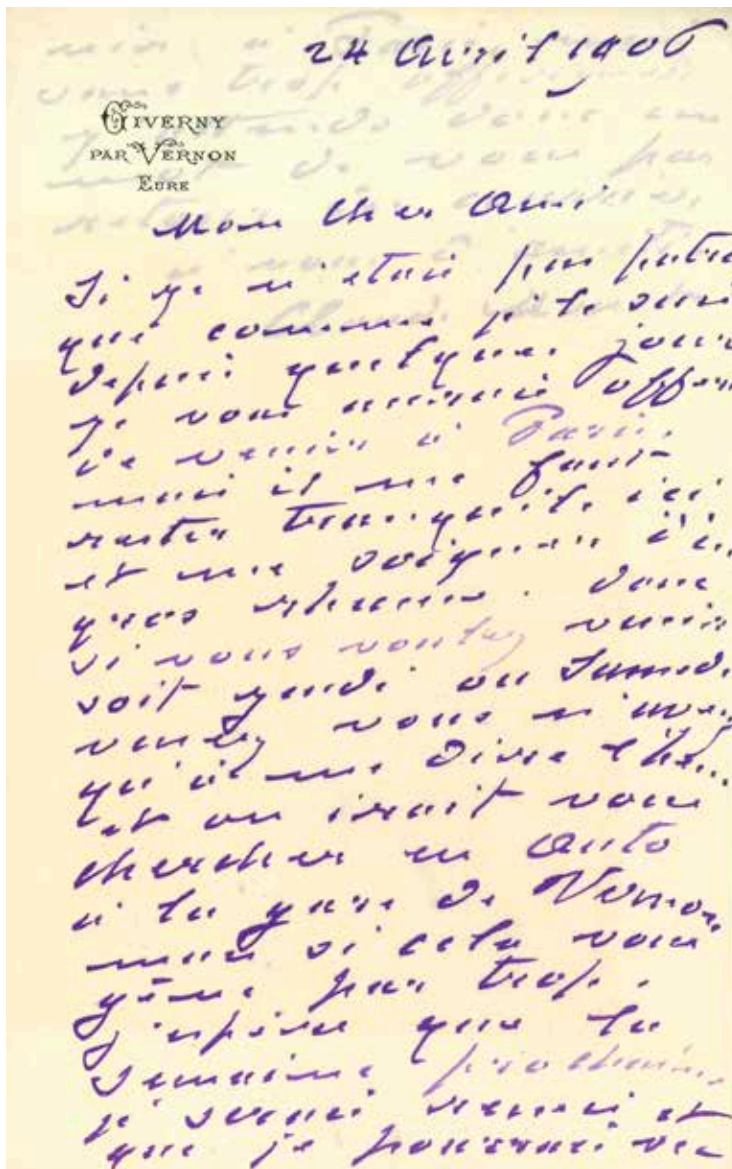 24 Avril 1906
GIVERNY
PAR VERNON
EURE
Mon Cher Ami
Si je n'etais pas patra
que comme je le suis
depuis quelques jours
je vous aurais offer
de venir à Paris.
mais il me faut
rester tranquile ici
et me soigner d'un
gros rhume. donc
si vous voulez venir
soit jeudi ou Samedi
venez vous n'avez
qu'à me dire l'heu
et on irait vous
chercher en auto
à la gare de Vernon
mais si cela vous
gêne par trop.
j'espère que la
semaine prochaine
je serai remis et
que je pourrai ve